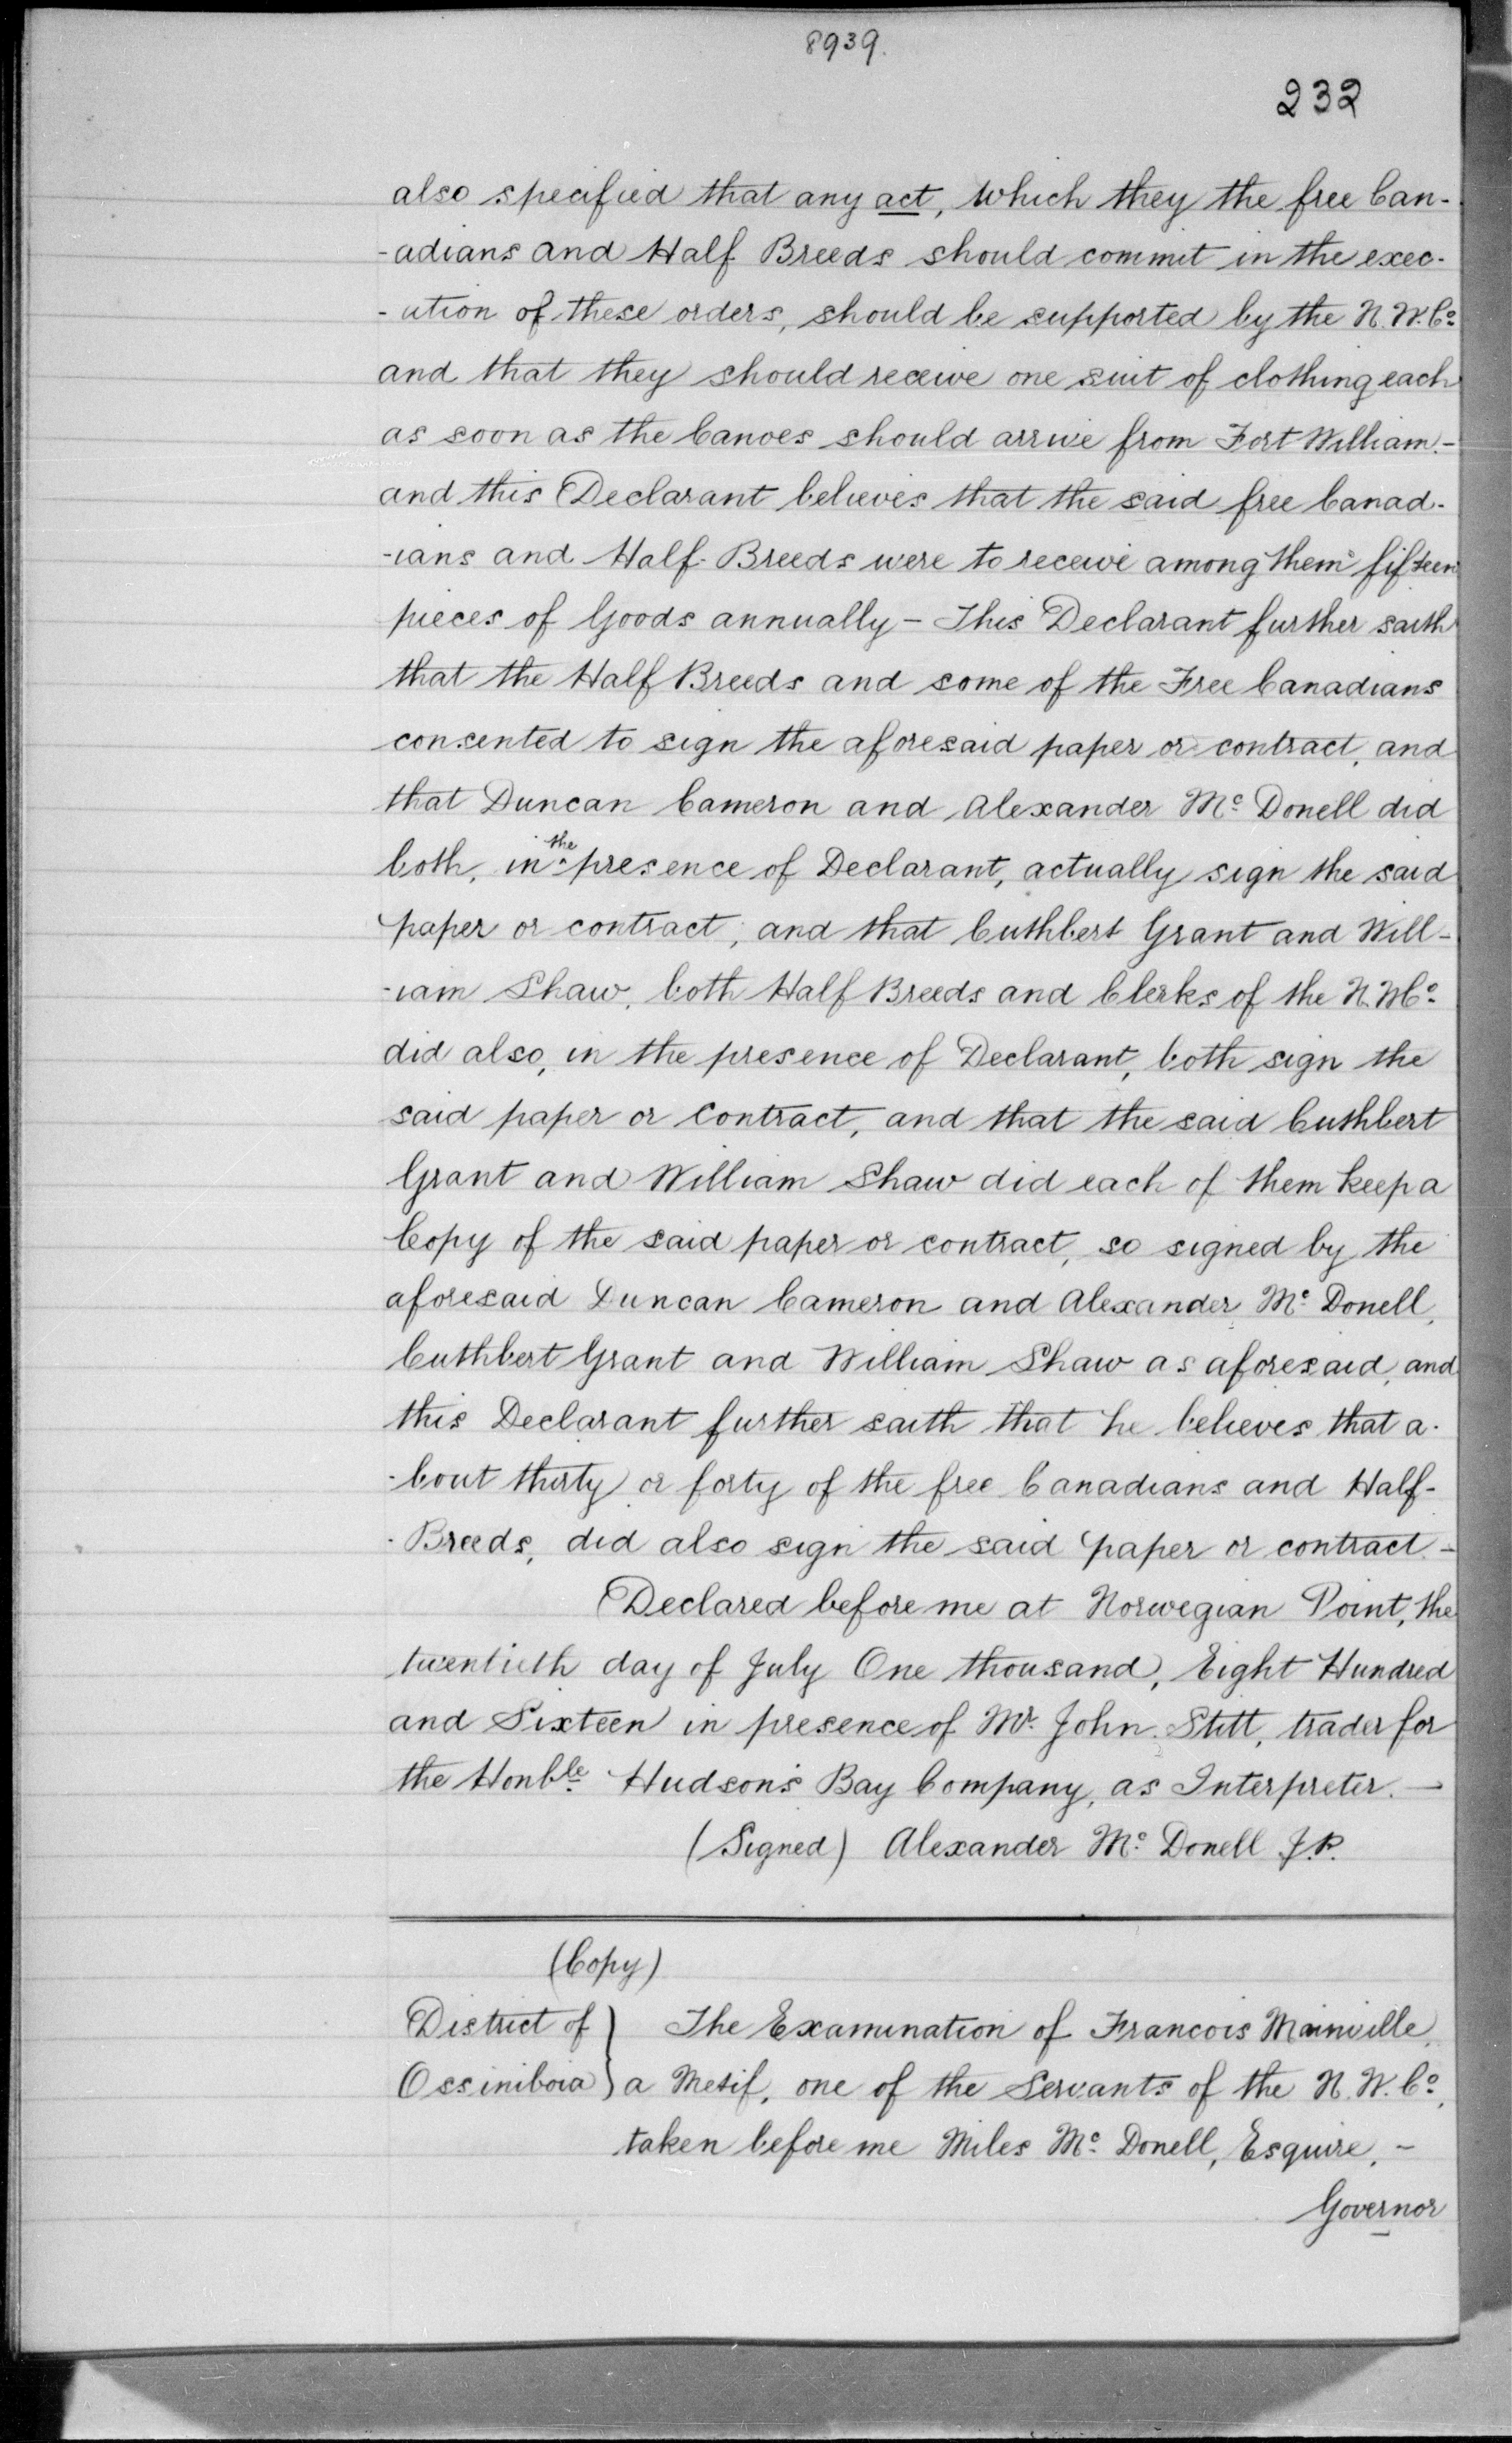 8939.
232
also specified that any act, which they the free Can-
-adians and Half Breeds should commit in the exec-
-ution of these orders, should be supported by the N.W.Co
and that they should receive one suit of clothing each
as soon as the Canoes should arrive from Fort William.-
and this Declarant believes that the said free Canad-
-ians and Half-Breeds were to receive among them fifteen
pieces of Goods annually - This Declarant further saith
that the Half Breeds and some of the Free Canadians
consented to sign the aforesaid paper or contract, and
that Duncan Cameron and Alexander Mc Donell did
both, in the presence of Declarant, actually sign the said
paper or contract, and that Cuthbert Grant and Will-
-iam Shaw, both Half Breeds and Clerks of the N.W.Co
did also, in the presence of Declarant, both sign the
said paper or Contract, and that the said Cuthbert
Grant and William Shaw did each of them keep a
Copy of the said paper or contract, so signed by the
aforesaid Duncan Cameron and Alexander Mc Donell,
Cuthbert Grant and William Shaw as aforesaid, and
this Declarant further saith that he believes that a-
-bout thirty or forty of the free Canadians and Half-
-Breeds, did also sign the said paper or contract -
Declared before me at Norwegian Point, the
twentieth day of July One thousand, Eight Hundred
and Sixteen in presence of Mr. John Stitt, trader for
the Honble Hudson's Bay Company, as Interpreter. -
(Signed) Alexander Mc Donell J.P.
(Copy)
District of } The Examination of Francois Mainville,
Ossiniboia } a Metif, one of the Servants of the N.W.Co,
taken before me Miles Mc Donell, Esquire, -
Governor